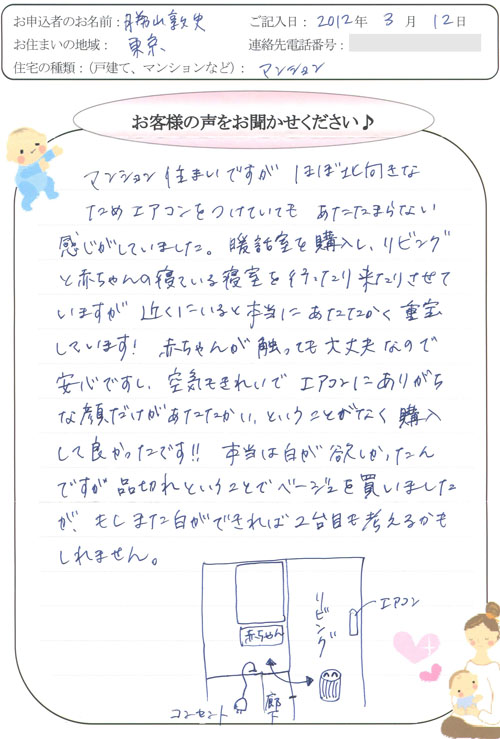 お申込者のお名前: 勝山敦史 ご記入日: 2012年 3月 12日
お住まいの地域: 東京 連絡先電話番号:
住宅の種類:(戸建て、マンションなど): マンション
お客様の声をお聞かせください♪
マンション住まいですが ほぼ北向きな
ためエアコンをつけていても あたたまらない
感じがしていました。暖話室を購入し、リビング
と赤ちゃんの寝ている寝室を行ったり来たりさせて
いますが 近くにいると本当にあたたかく重宝
しています! 赤ちゃんが触っても大丈夫なので
安心ですし、空気もきれいで エアコンにありがち
な顔だけがあたたかい、ということがなく購入
して良かったです!! 本当は白が欲しかったん
ですが品切れということでベージュを買いました
が、もしまた白ができれば2台目も考えるかも
しれません。
エアコン
リビング
赤ちゃん
廊下
コンセント